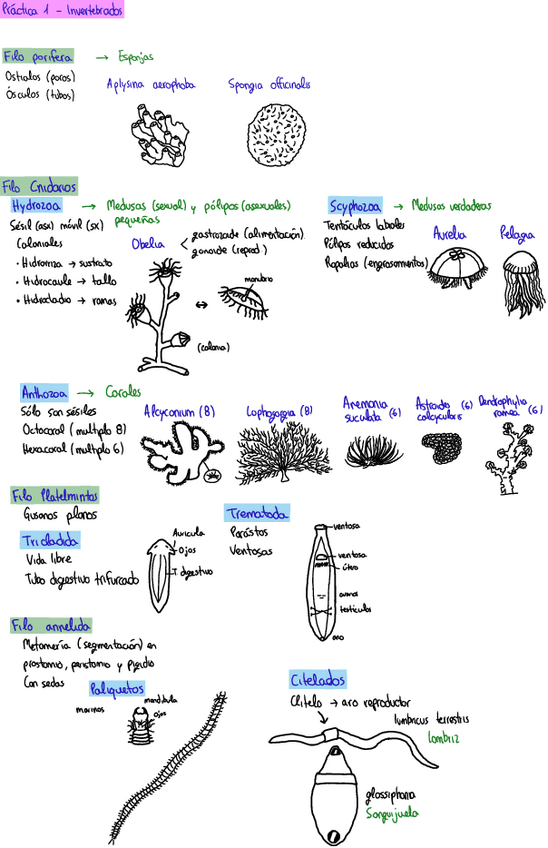 Práctica 1 - Invertebrados
Filo porifera → Esponjas
Ostiolos (poros)
Ósculos (tubos)
Aplysina aerophoba
Spongia officinalis
Filo Cnidarios
Hydrozoa → Medusas (sexual) y pólipos (asexuales)
pequeñas
Sésil (asx) móvil (sx)
Coloniales
• Hidrorriza → sustrato
• Hidrocaule → tallo
• Hidrocladio → ramas
Obelia
gastrozoide (alimentación)
gonoide (reprod.)
manubrio
(colonia)
Scyphozoa → Medusas verdaderas
Tentáculos labiales
Pólipos reducidos
Ropalias (engrosamientos)
Aurelia
Pelagia
Anthozoa → Corales
Sólo son sésiles
Octocoral (multiplo 8)
Hexacoral (multiplo 6)
Alcyonium (8)
Lophogorgia (8)
Anemonia
sulcata (6)
Astroides (6)
calycularis
Dendrophylia
ramea (6)
Filo Platelmintos
Gusanos planos
Tricladida
Vida libre
Tubo digestivo trifurcado
Auricula
Ojos
T. digestivo
Trematoda
Parásitos
Ventosas
ventosa
ventosa
útero
ovarios
testiculos
ano
Filo annelida
Metameria (segmentación) en
prostomio, peristomio y pigidio
Con sedas
Poliquetos
marinos
mandibula
ojos
Citelados
Clitelo → aro reproductor
lumbricus terrestris
Lombriz
glossiphonia
Sanguijuela